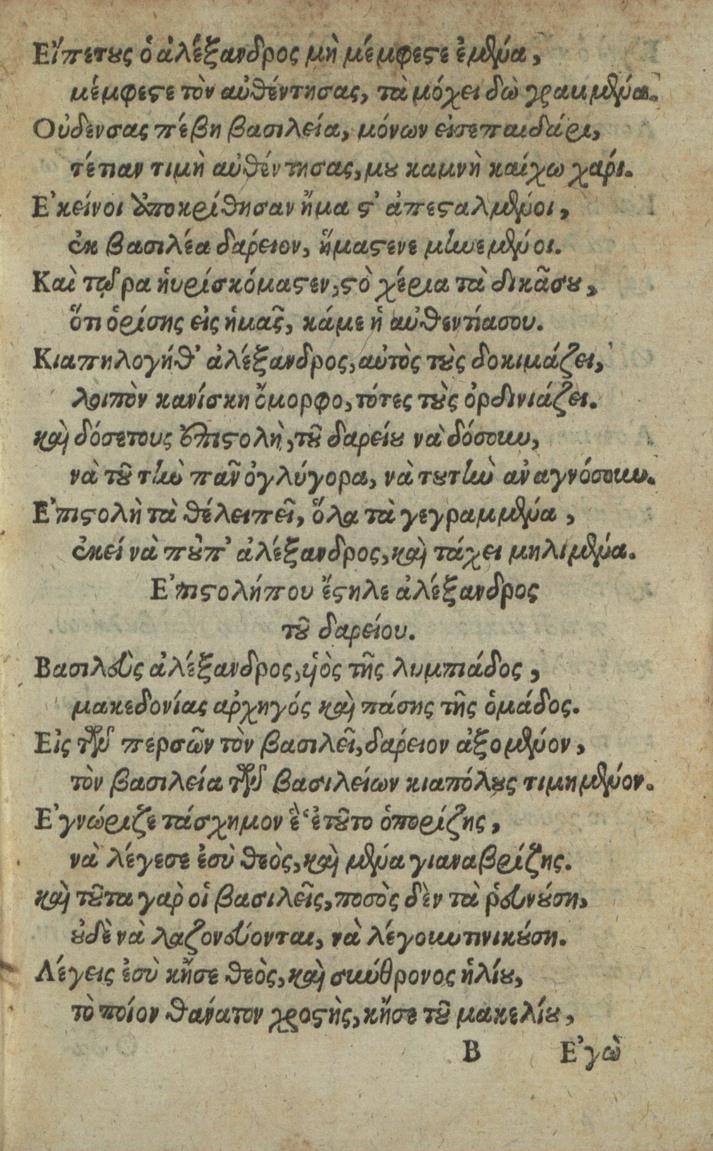 Εἴπετυς ὁ ἀλέξανδρος μὴ μέμφεστε ἐμένα,
μέμφεστε τὸν αὐθέντησας, τὰ μόχει δὼ γραμμένα.
Οὐδενσας πέβη βασιλεία, μόνων εἰσεπαιδάρι,
τέτιαν τιμὴ αὐθέντησας, μου καμνὴ καίχω χαρι.
Ἐκείνοι ὑποκρίθησαν ἤμα στ' ἀπεσταλμένοι,
ἐκ βασιλέα δαρείον, ἤμαστενε μηνεμένοι.
Καὶ τώρα ἡυρισκόμαστεν, στὸ χέρια τὰ δικᾶσου,
ὅτι ὁρίσης εἰς ἡμᾶς, κάμε ἡ αὐθεντίασου.
Κιαπηλογήθ' ἀλέξανδρος, αὐτὸς τοὺς δοκιμάζει,
λοιπὸν κανίσκη ὄμορφο, τότες τοὺς ὀρδινιάζει.
καὶ δόσετους ἐπιστολὴ, τοῦ δαρείου νὰ δόσουν,
νὰ τοῦ τὴν πᾶν ὀγλύγορα, νὰ τουτὴν αναγνόσουν.
Ἐπιστολὴ τὰ θέλειπεῖ, ὅλα τὰ γεγραμμένα,
ἐκεί νὰ πουπ' ἀλέξανδρος, καὶ τάχει μηλιμένα.
Ἐπιστολήπου ἔστηλε ἀλέξανδρος
τοῦ δαρείου.
Βασιλεὺς ἀλέξανδρος, υἱὸς τῆς λυμπιάδος,
μακεδονίας αρχηγός καὶ πάσης τῆς ὁμάδος.
Εἰς τῶν περσῶν τὸν βασιλεῖ, δάρειον ἀξομένον,
τὸν βασιλεία τῶν βασιλείων κιαπόλους τιμημένον.
Ἐγνώριζε τάσχημον ἒ ἐτοῦτο ὁπορίζης,
νὰ λέγεσε ἐσὺ θεὸς, καὶ μένα γιαναβρίζης.
καὶ τοῦτα γαρ οἱ βασιλεῖς, ποσὸς δὲν τὰ ῥευνούση,
ουδὲ νὰ λαζονεύονται, νὰ λέγουντινικούση.
Λέγεις ἐσὺ κῆσε θεὸς, καὶ σκύθρονος ἡλίου,
τὸ ποίον θάνατον χροστὴς, κῆσε τοῦ μακελίου,
Β Ἐγὼ